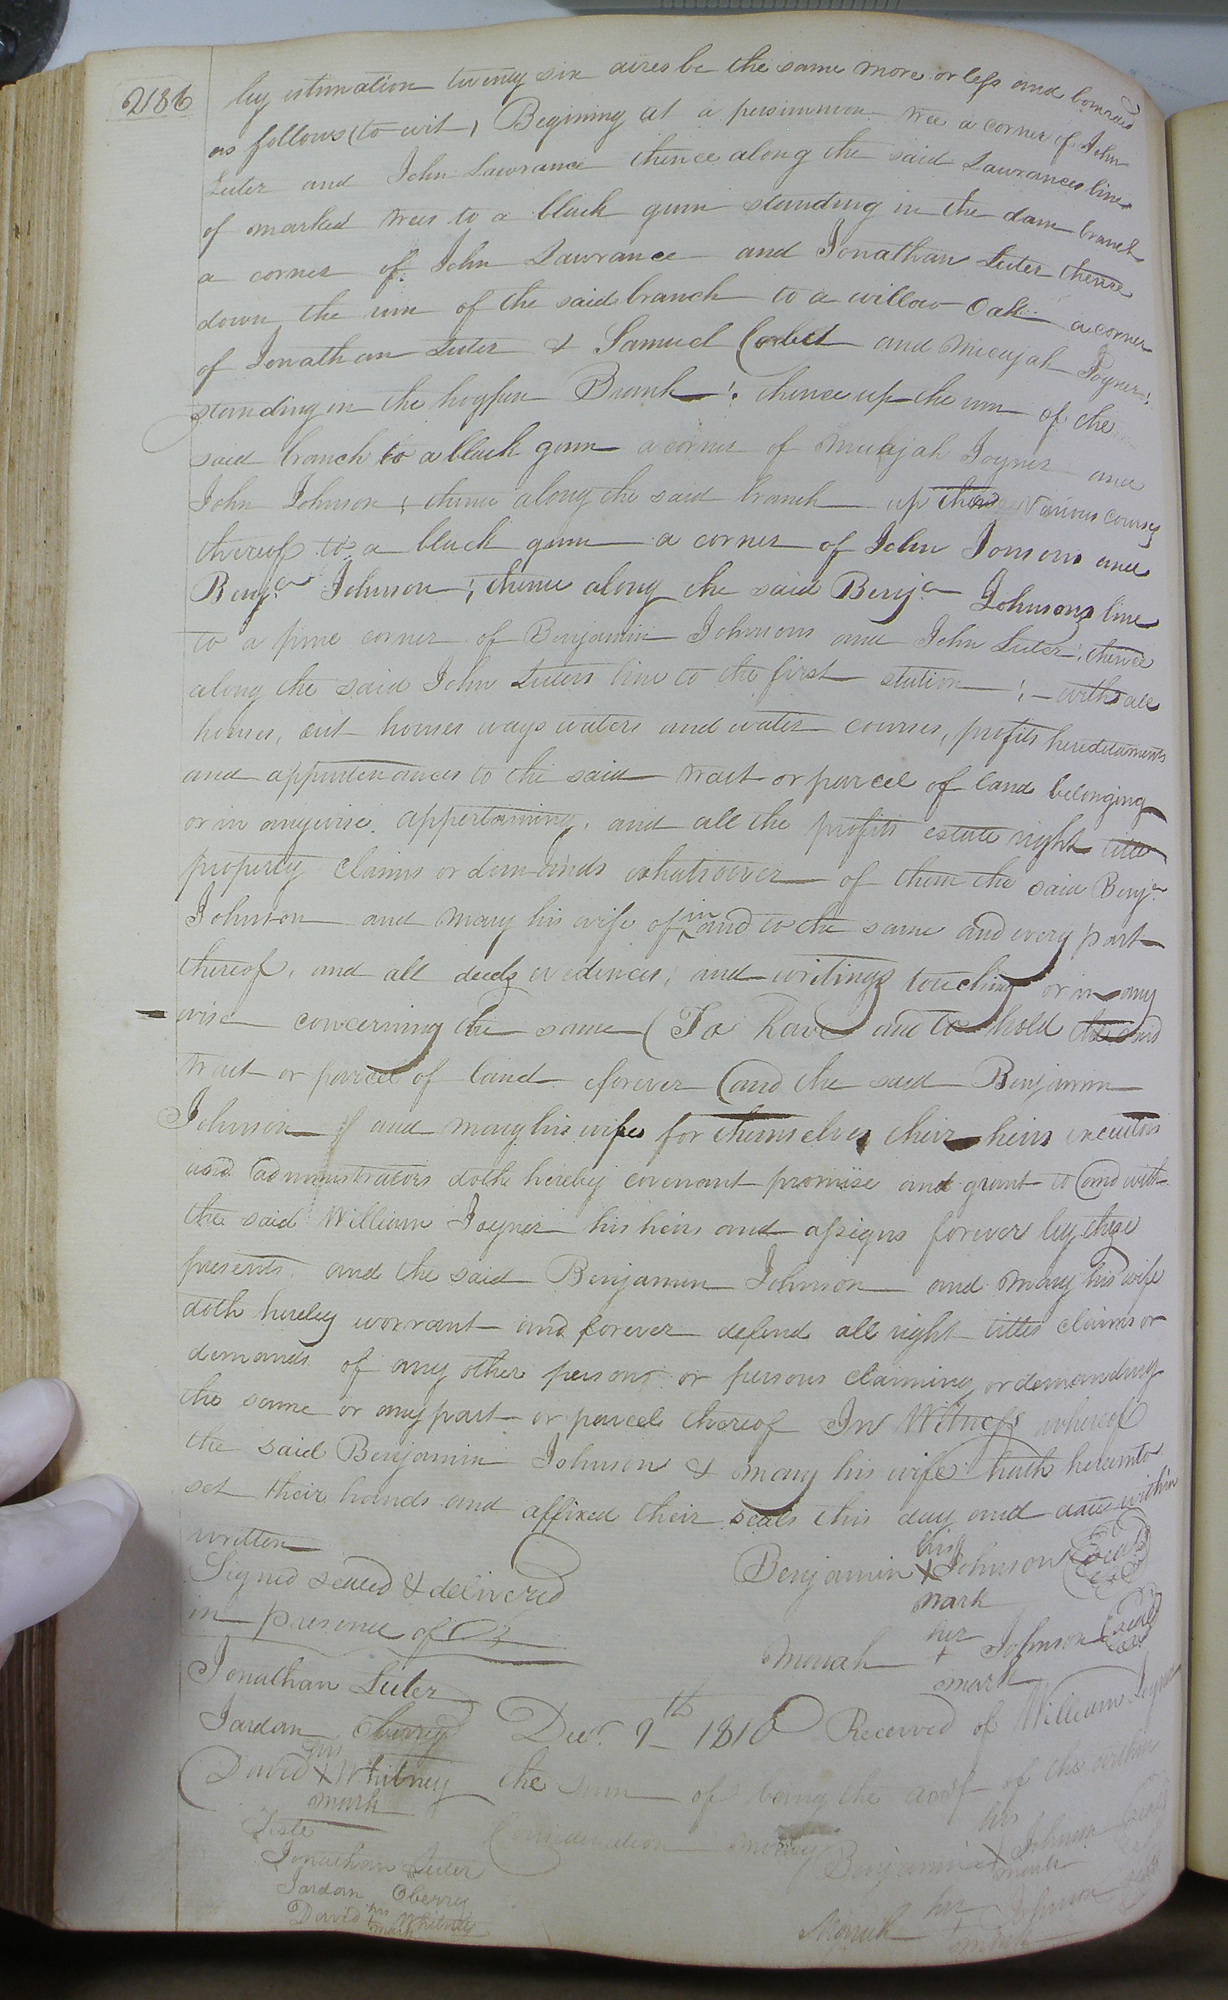 2186
by estimation twenty six acres be the same more or less and bounded
as follows (to wit,) Begining at a persimmon tree a corner of John
Luter and John Lawrance thence along the said Lawrances line
of marked trees to a black gum standing in the dam branch
a corner of John Lawrance and Jonathan Luter thence
down the run of the said branch to a willow Oak a corner
of Jonathan Luter & Samuel Corbet and Micajah Joyner;
standing in the hogpen Branh; thence up the run of the
said branch to a black gum a corner of Micajah Joyner and
John Johnson; thence along the said branch up the various courses
thereof to a black gum a corner of John Jonsons and
Benja Johnson; thence along the said Benja Johnsons line
to a pine corner of Benjamin Johnsons and John Luter; thence
along the said John Luters line to the first station; with all
houses, out houses ways waters and water courses, profits hereditaments
and appurtenances to the said tract or parcel of land belonging
or in anywise appertaining, and all the profits estate right title
property claims or demands whatsoever of them the said Benja
Johnson and Mary his wife of in and to the same and every part
thereof, and all deeds evidences, and writings touching or in any
wise concerning the same (To have and to hold the said
tract or parcel of land forever (and the said Benjamin
Johnson and Mary his wife for themselves their heirs executors
and administrators doth hereby covenant promise and grant to and with
the said William Joyner his heirs and assigns forever by these
presents and the said Benjamin Johnson and Mary his wife
doth hereby worrant and forever defend all right titles claims or
demands of any other person or persons claiming or demanding
the same or any part or parcel thereof In Witness whereof
the said Benjamin Johnson & Mary his wife hath hereunto
set their hands and affixed their seals this day and date within
written
Signed sealed & delivered
in presence of
Benjamin his X mark Johnson (seal)
Moriah her + mark Johnson (seal)
Jonathan Luter
Jardan Oberry
David his X mark Whitney
Decr 9th 1816 Received of William Joyner
the sum of being the of the within
Consideration money
Benjamin his X mark Johnson seal
Moriah her + mark Johnson seal
Teste
Jonathan Luter
Jardan Oberry
David his + mark Whitney